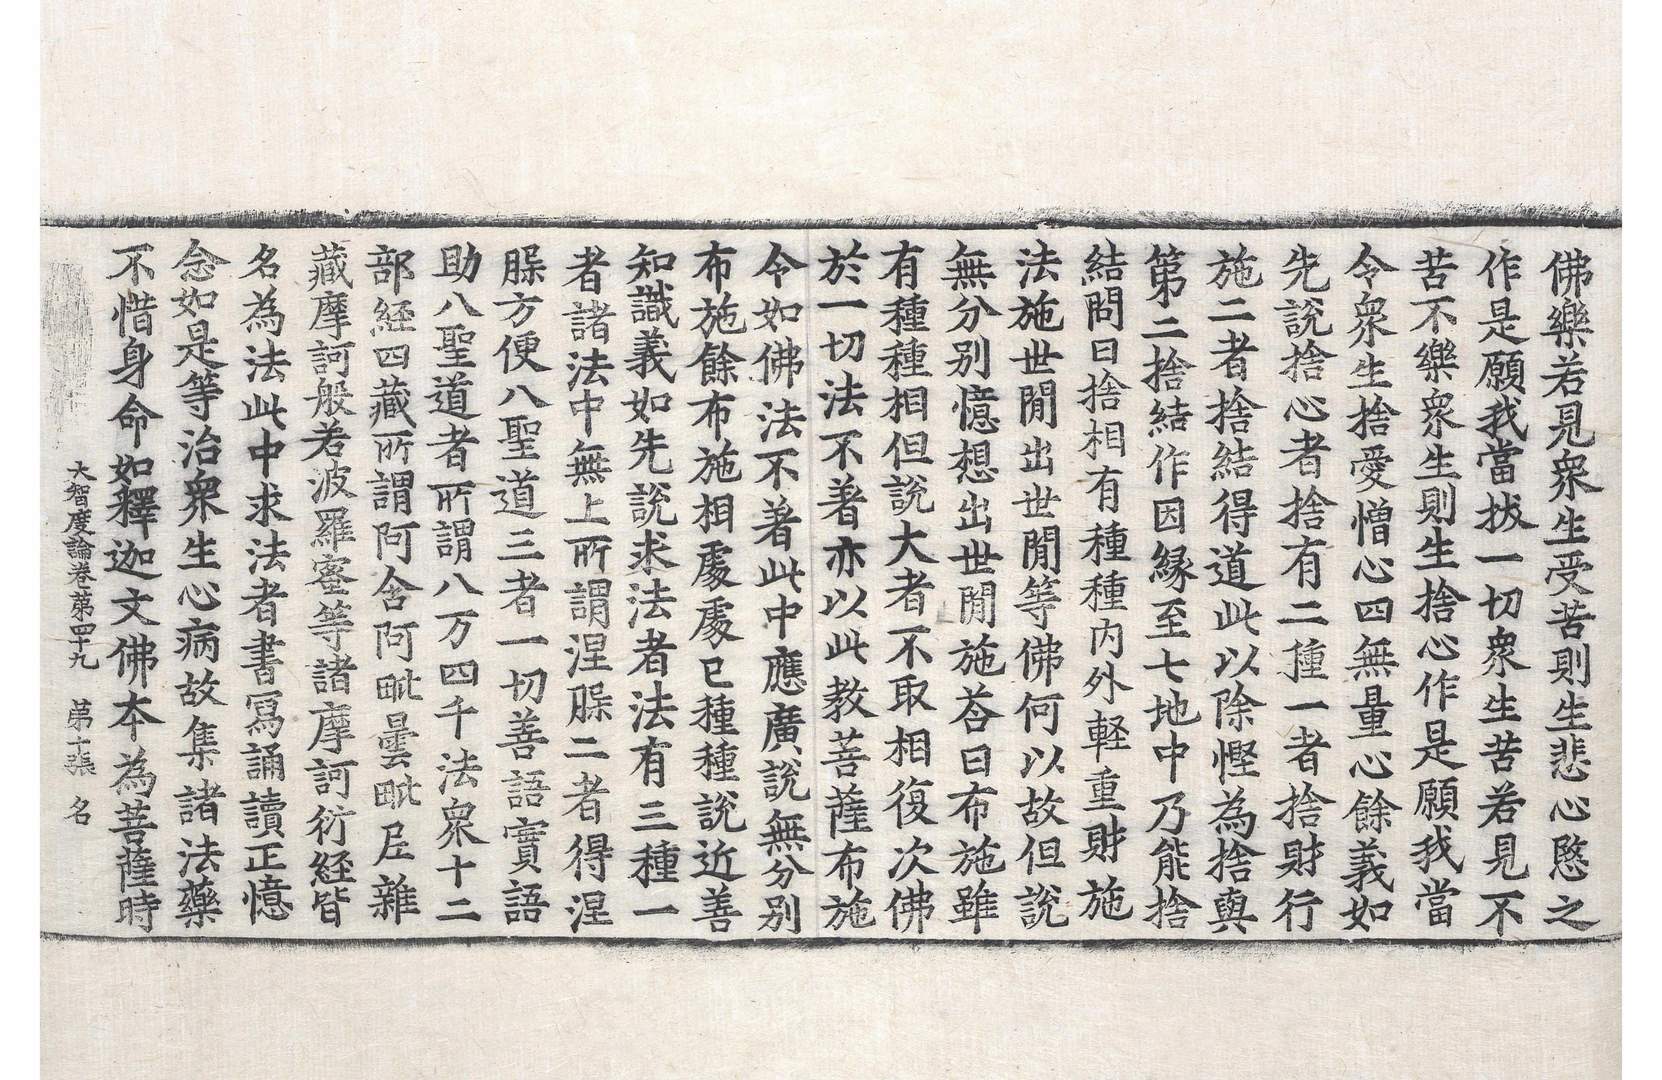 佛樂若見衆生受苦則生悲心愍之
作是願我當拔一切衆生苦若見不
苦不樂衆生則生捨心作是願我當
令衆生捨愛憎心四無量心餘義如
先說捨心者捨有二種一者捨財行
施二者捨結得道此以除慳為捨與
第二捨結作因緣至七地中乃能捨
結問曰捨相有種種內外軽重財施
法施世閒出世閒等佛何以故但說
無分別憶想出世閒施荅曰布施雖
有種種相但說大者不取相復次佛
於一切法不著亦以此教菩薩布施
令如佛法不著此中應廣說無分別
布施餘布施相處處已種種說近善
知識義如先說求法者法有三種一
者諸法中無上所謂涅槃二者得涅
槃方便八聖道三者一切善語實語
助八聖道者所謂八万四千法衆十二
部經四藏所謂阿含阿毗曇毗尼雜
藏摩訶般若波羅蜜等諸摩訶衍經皆
名為法此中求法者書寫誦讀正憶
念如是等治衆生心病故集諸法藥
不惜身命如釋迦文佛本為菩薩時
大智度論卷第四十九 第十張 名